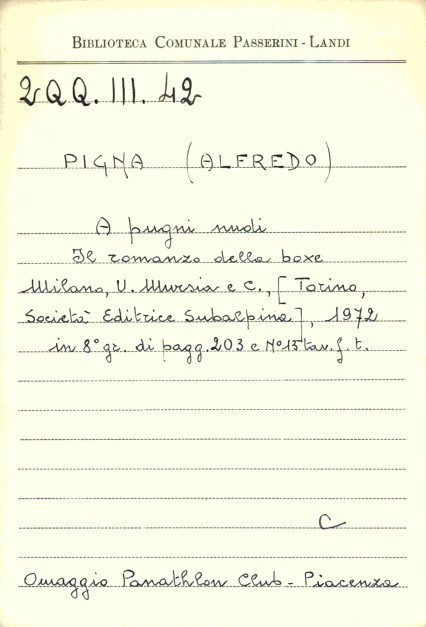 BIBLIOTECA COMUNALE PASSERINI - LANDI
2QQ. III. 42
PIGNA (ALFREDO)
A pugni nudi
Il romanzo della boxe
Milano, U. Mursia e C., [Torino,
Società Editrice Subalpina], 1972
in 8° gr. di pagg. 203 e N° 15 tav. f. t.
C
Omaggio Panathlon Club - Piacenza